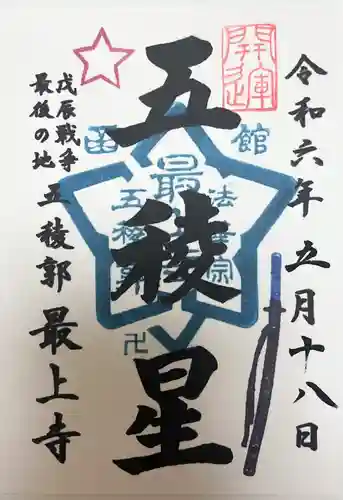 令和六年五月十八日
開運
五稜星
函館
法華宗
最上寺
五稜郭
卍
戊辰戦争
最後の地
五稜郭 最上寺